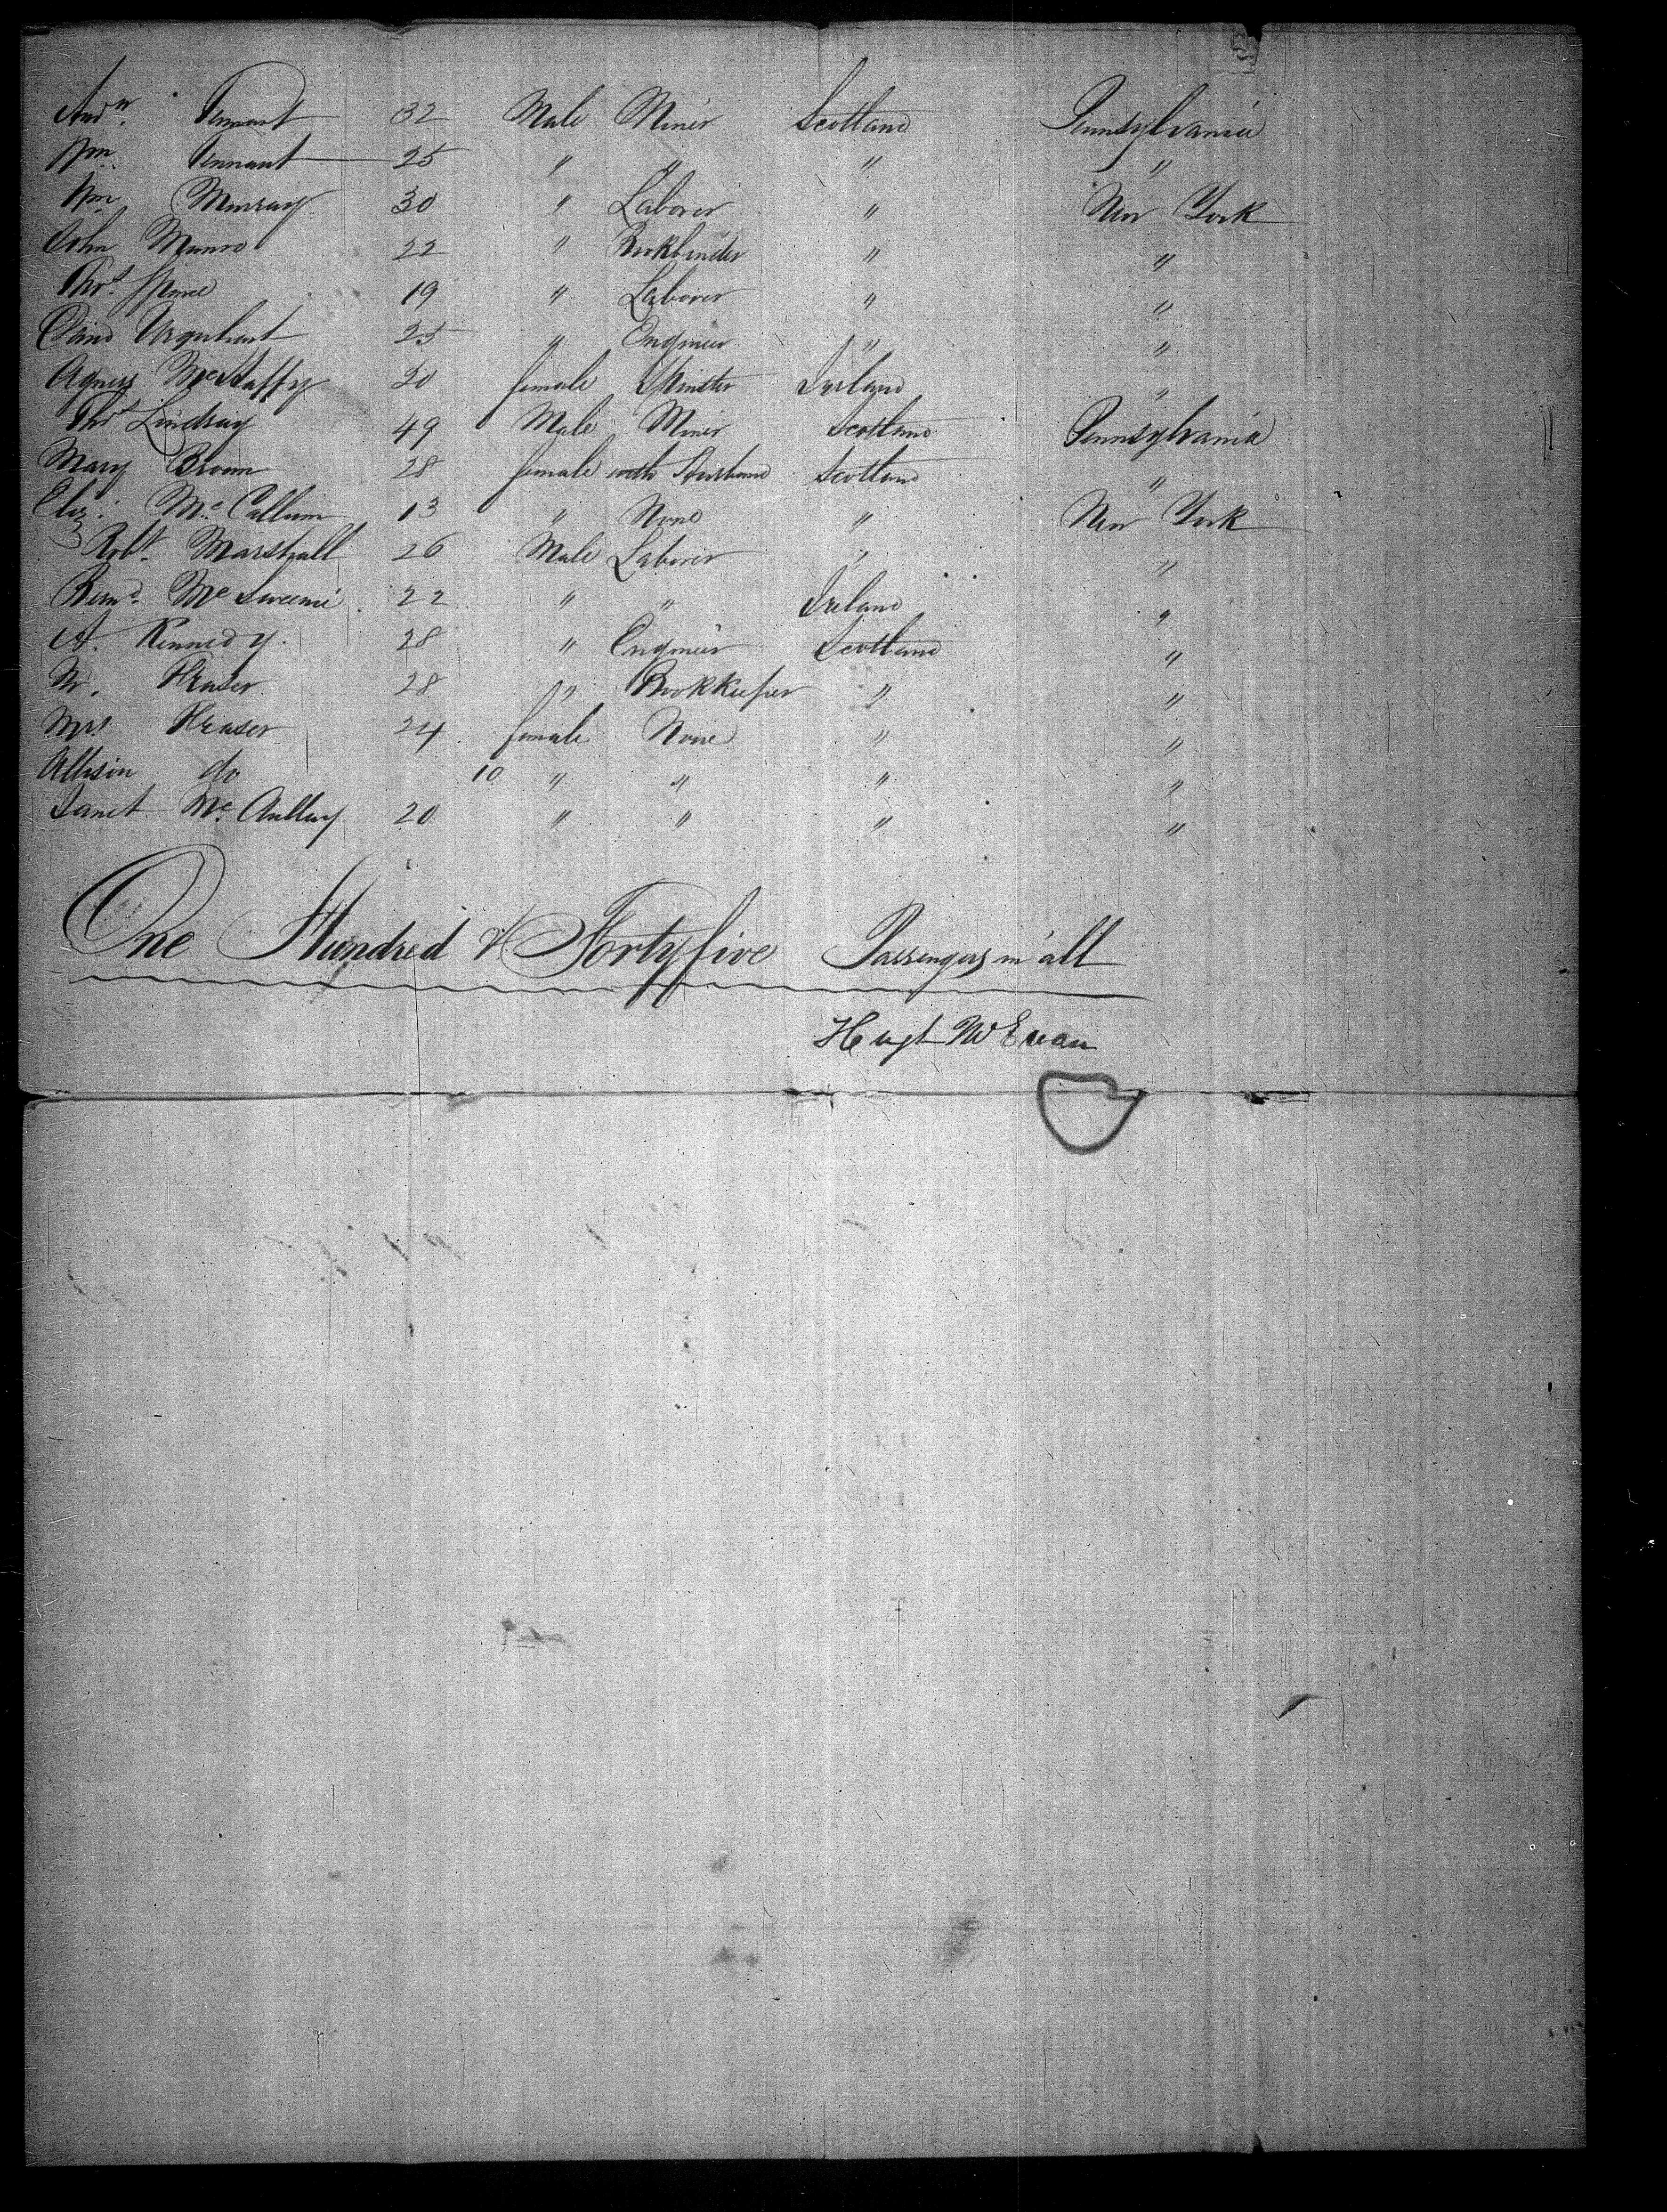 Andw. Tennant 32 Male Miner Scotland Pennsylvania
Wm. Tennant 25 " " " "
Wm. Murray 30 " Laborer " New York
John Munro 22 " Bookbinder " "
Thos. Spence 19 " Laborer " "
David Urquhart 25 " Engineer " "
Agnes McHaffy 20 female Spinster Ireland "
Thos Lindsay 49 Male Miner Scotland Pennsylvania
Mary Brown 28 female with Husband Scotland "
Eliz. Mc.Callum 13 " None " New York
Robt. Marshall 26 Male Laborer " "
Bernd. Mc 22 " " Ireland "
A. Kennedy. 28 " Engineer Scotland "
Fraser 28 " BookKeeper " "
Mrs Fraser 24 female None " "
Allison do 10 " " " "
Janet Mc.Aulley 20 " " " "
One Hundred & Forty five Passengers in all
Hugh McEwan